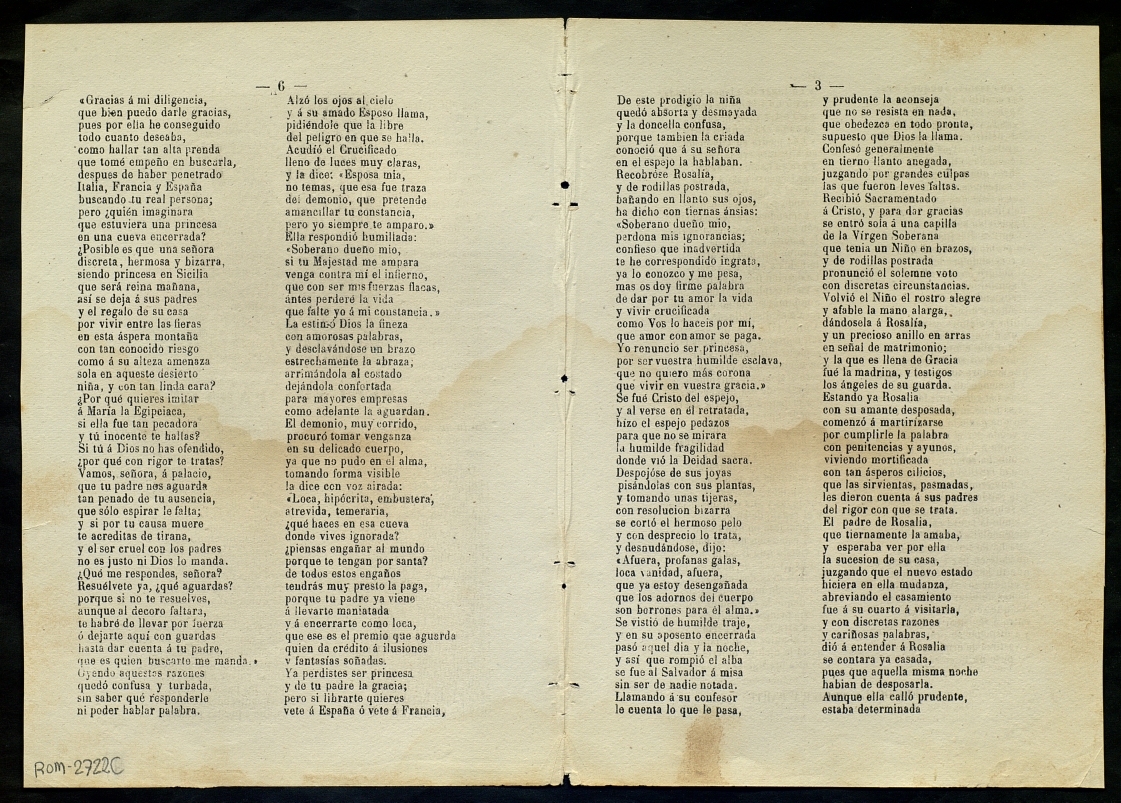 — 6 —
«Gracias á mi diligencia,
que bien puedo darle gracias,
pues por ella he conseguido
todo cuanto deseaba,
como hallar tan alta prenda
que tomé empeño en buscarla,
despues de haber penetrado
Italia, Francia y España
buscando tu real persona;
pero ¿quién imaginara
que estuviera una princesa
en una cueva encerrada?
¿Posible es que una señora
discreta, hermosa y bizarra,
siendo princesa en Sicilia
que será reina mañana,
así se deja á sus padres
y el regalo de su casa
por vivir entre las fieras
en esta áspera montaña
con tan conocido riesgo
como á su alteza amenaza
sola en aqueste desierto
niña, y con tan linda cara?
¿Por qué quieres imitar
á María la Egipciaca,
si ella fue tan pecadora
y tú inocente te hallas?
Si tú á Dios no has ofendido,
¿por qué con rigor te tratas?
Vamos, señora, á palacio,
que tu padre nos aguarda
tan penado de tu ausencia,
que sólo espirar le falta;
y si por tu causa muere
te acreditas de tirana,
y el ser cruel con los padres
no es justo ni Dios lo manda.
¿Qué me respondes, señora?
Resuélvete ya, ¿qué aguardas?
porque si no te resuelves,
aunque al decoro faltara,
te habré de llevar por fuerza
ó dejarte aquí con guardas
hasta dar cuenta á tu padre,
que es quien buscarte me manda.»
Oyendo aquestas razones
quedó confusa y turbada,
sin saber qué responderle
ni poder hablar palabra.
Alzó los ojos al cielo
y á su amado Esposo llama,
pidiéndole que la libre
del peligro en que se halla.
Acudió el Crucificado
lleno de luces muy claras,
y la dice: «Esposa mia,
no temas, que esa fue traza
del demonio, que pretende
amancillar tu constancia,
pero yo siempre te amparo.»
Ella respondió humillada:
«Soberano dueño mio,
si tu Majestad me ampara
venga contra mí el infierno,
que con ser mis fuerzas flacas,
ántes perderé la vida
que falte yo á mi constancia.»
La estimó Dios la fineza
con amorosas palabras,
y desclavándose un brazo
estrechamente la abraza;
arrimándola al costado
dejándola confortada
para mayores empresas
como adelante la aguardan.
El demonio, muy corrido,
procuró tomar venganza
en su delicado cuerpo,
ya que no pudo en el alma,
tomando forma visible
la dice con voz airada:
«Loca, hipócrita, embustera,
atrevida, temeraria,
¿qué haces en esa cueva
donde vives ignorada?
¿piensas engañar al mundo
porque te tengan por santa?
de todos estos engaños
tendrás muy presto la paga,
porque tu padre ya viene
á llevarte maniatada
y á encerrarte como loca,
que ese es el premio que aguarda
quien da crédito á ilusiones
y fantasías soñadas.
Ya perdistes ser princesa
y de tu padre la gracia;
pero si librarte quieres
vete á España ó vete á Francia,
— 3 —
De este prodigio la niña
quedó absorta y desmayada
y la doncella confusa,
porque tambien la criada
conoció que á su señora
en el espejo la hablaban.
Recobróse Rosalía,
y de rodillas postrada,
bañando en llanto sus ojos,
ha dicho con tiernas ánsias:
«Soberano dueño mio,
perdona mis ignorancias;
confieso que inadvertida
te he correspondido ingrata,
ya lo conozco y me pesa,
mas os doy firme palabra
de dar por tu amor la vida
y vivir crucificada
como Vos lo haceis por mí,
que amor con amor se paga.
Yo renuncio ser princesa,
por ser vuestra humilde esclava,
que no quiero más corona
que vivir en vuestra gracia.»
Se fué Cristo del espejo,
y al verse en él retratada,
hizo el espejo pedazos
para que no se mirara
la humilde fragilidad
donde vió la Deidad sacra.
Despojóse de sus joyas
pisándolas con sus plantas,
y tomando unas tijeras,
con resolucion bizarra
se cortó el hermoso pelo
y con desprecio lo trata,
y desnudándose, dijo:
«Afuera, profanas galas,
loca vanidad, afuera,
que ya estoy desengañada
que los adornos del cuerpo
son borrones para él alma.»
Se vistió de humilde traje,
y en su aposento encerrada
pasó aquel dia y la noche,
y así que rompió el alba
se fue al Salvador á misa
sin ser de nadie notada.
Llamando á su confesor
le cuenta lo que le pasa,
y prudente la aconseja
que no se resista en nada,
que obedezca en todo pronta,
supuesto que Dios la llama.
Confesó generalmente
en tierno llanto anegada,
juzgando por grandes culpas
las que fueron leves faltas.
Recibió Sacramentado
á Cristo, y para dar gracias
se entró sola á una capilla
de la Vírgen Soberana
que tenia un Niño en brazos,
y de rodillas postrada
pronunció el solemne voto
con discretas circunstancias.
Volvió el Niño el rostro alegre
y afable la mano alarga,
dándosela á Rosalía,
y un precioso anillo en arras
en señal de matrimonio;
y la que es llena de Gracia
fué la madrina, y testigos
los ángeles de su guarda.
Estando ya Rosalia
con su amante desposada,
comenzó á martirizarse
por cumplirle la palabra
con penitencias y ayunos,
viviendo mortificada
con tan ásperos cilicios,
que las sirvientas, pasmadas,
les dieron cuenta á sus padres
del rigor con que se trata.
El padre de Rosalia,
que tiernamente la amaba,
y esperaba ver por ella
la sucesion de su casa,
juzgando que el nuevo estado
hiciera en ella mudanza,
abreviando el casamiento
fue á su cuarto á visitarla,
y con discretas razones
y cariñosas palabras,
dió á entender á Rosalia
se contara ya casada,
pues que aquella misma noche
habian de desposarla.
Aunque ella calló prudente,
estaba determinada
ROM-2722C